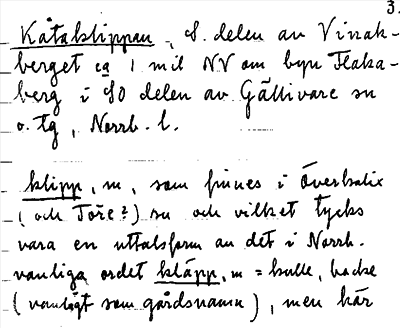 3.
Kåtaklippan, S. delen av Vinsak-
berget ca 1 mil NV om byn Flaka-
berg i SO delen av Gällivare sn
o. tg, Norrb. l.
klipp, m, som finnes i Överkalix
(och Töre?) sn och vilket tycks
vara en uttalsform av det i Norrb.
vanliga ordet kläpp, m = kulle, backe
(vanligt som gårdsnamn), men här